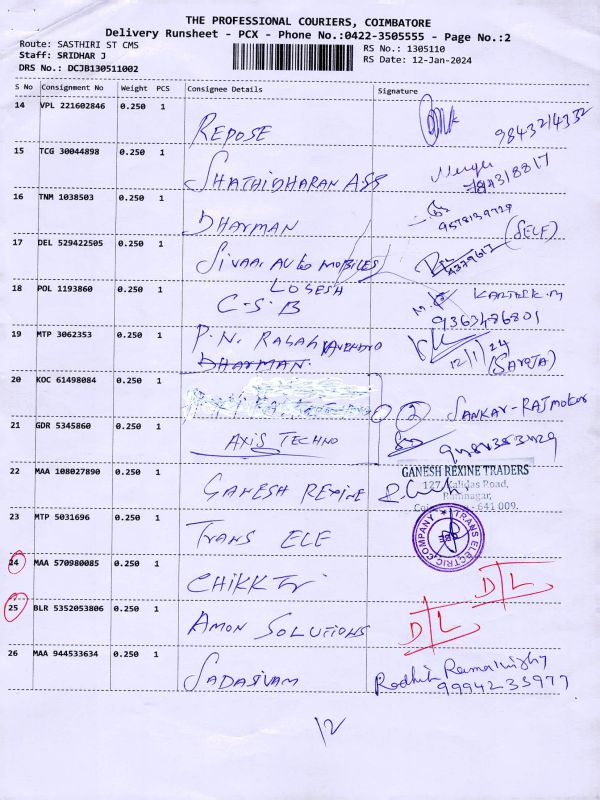 THE PROFESSIONAL COURIERS, COIMBATORE
Delivery Runsheet - PCX - Phone No.:0422-3505555 - Page No.:2
Route: SASTHIRI ST CMS
RS No.: 1305110
Staff: SRIDHAR J
RS Date: 12-Jan-2024
DRS No.: DCJB130511002
S No Consignment No Weight PCS Consignee Details Signature
14 VPL 221602846 0.250 1
REPOSE 9843214332
15 TCG 30044898 0.250 1
SHATHIDHARAN ASS
16 TNM 1038503 0.250 1
DHARMAN
17 DEL 529422505 0.250 1
(SELF)
SIVAAI AUTO MOBILES
18 POL 1193860 0.250 1
LOGESH
C-S-B
M. KARTHIK.M
9363486801
19 MTP 3062353 0.250 1
P.N.
DHARMAN.
12/1/24
(SAROJA)
20 KOC 61498084 0.250 1
2 SANKAR-RAJ MOTOR
21 GDR 5345860 0.250 1
AXIS TECHNO
22 MAA 108027890 0.250 1
GANESH REXINE
GANESH REXINE TRADERS
127, Kalidas Road,
Ramnagar,
641 009.
23 MTP 5031696 0.250 1
TRANS ELE
TRANS ELECTRIC COMPANY
CBE
24 MAA 570980085 0.250 1
D L
25 BLR 5352053806 0.250 1
AMON SOLUTIONS
D L
26 MAA 944533634 0.250 1
SADASIVAM
99942 33977
12